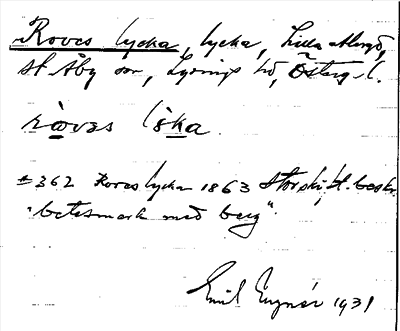 Roves lycka, lycka, Lilla Åbergö,
St Åby sn, Lysings hd, Österg. l.
ròvas l⁠ka.
# 362 Roves lycka 1863 Storskift. beskr.
"betesmark med berg".
Emil 1931